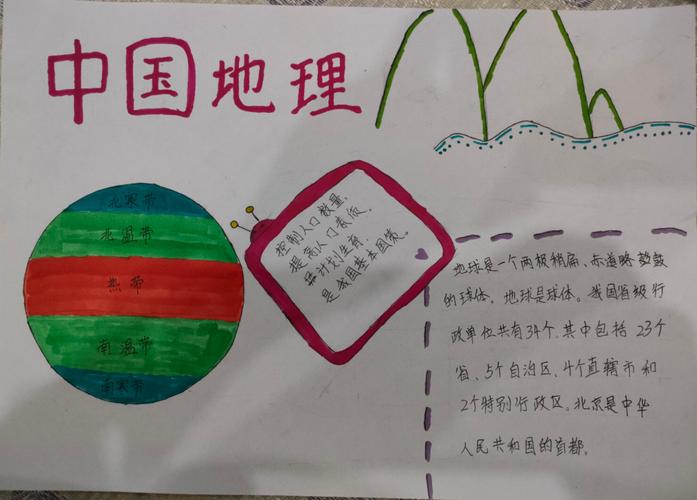 中国地理
北寒带
北温带
热带
南温带
南寒带
控制人口数量,
提高人口素质,
计划生育
是我国基本国策。
地球是一个两极稍扁、赤道略鼓
的球体。地球是球体。我国省级行
政单位共有34个,其中包括23个
省、5个自治区、4个直辖市和
2个特别行政区。北京是中华
人民共和国的首都。